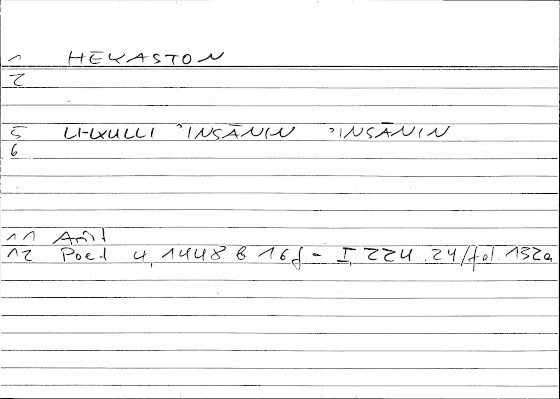 1 HEKASTON
2
5 LI-KULLI 'INSĀNIN 'INSĀNIN
6
11 Arist
12 Poet 4, 1448 b 16f - I, 224.24/fol. 132a